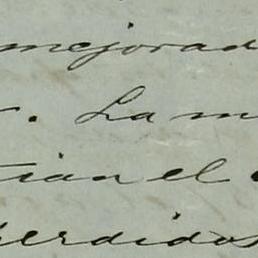 mejorad
. La m
rian el
perdidos